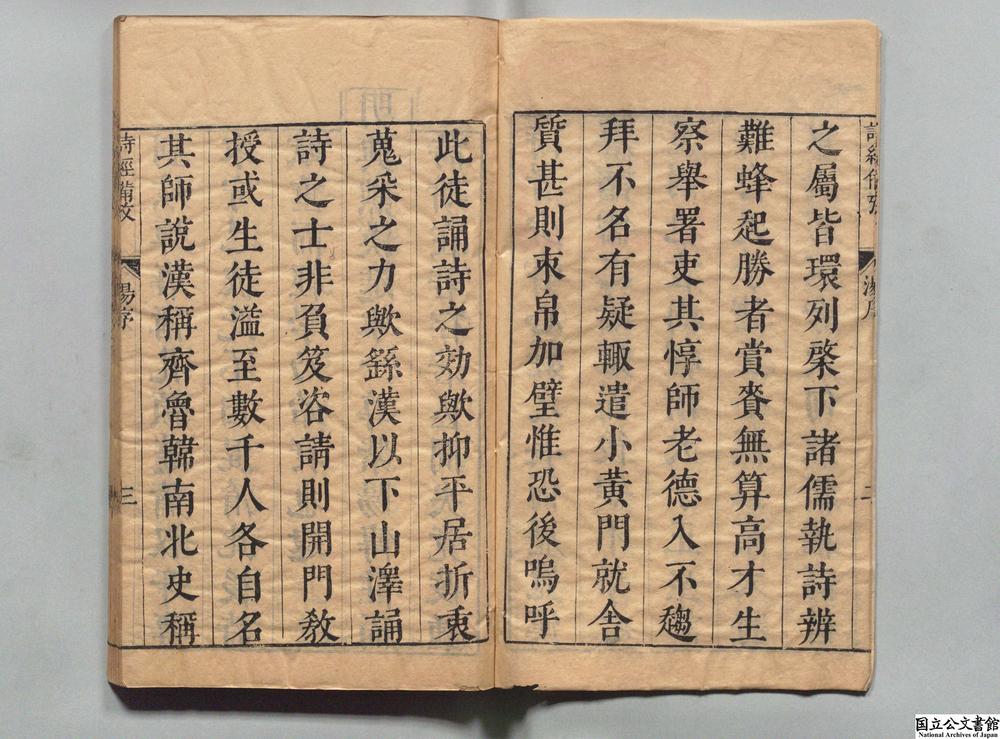 之屬皆環列棨下諸儒執詩辨
難蜂起勝者賞賚無算高才生
察舉署吏其惇師老德入不趨
拜不名有疑輒遣小黃門就舍
質甚則束帛加璧惟恐後嗚呼
此徒誦詩之効歟抑平居折衷
蒐采之力歟繇漢以下山澤誦
詩之士非負笈咨請則開門教
授或生徒溢至數千人各自名
其師說漢稱齊魯韓南北史稱
詩經備攷
湯序
二
詩經備攷
湯序
三
国立公文書館
National Archives of Japan